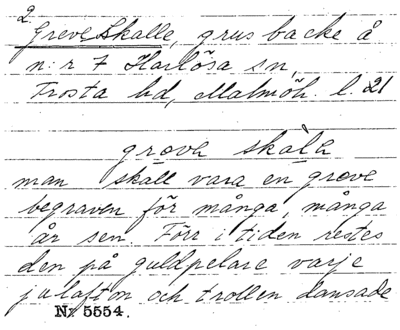 2
Greveskalle, grusbacke å
n:r 7 Harlösa sn,
Frosta hd, Malmöh. l. 21
grøvə skàlə
man skall vara en greve
begraven för många, många
år sen. Förr i tiden restes
den på guldpelare varje
julafton och trollen dansade
Nr 5554.